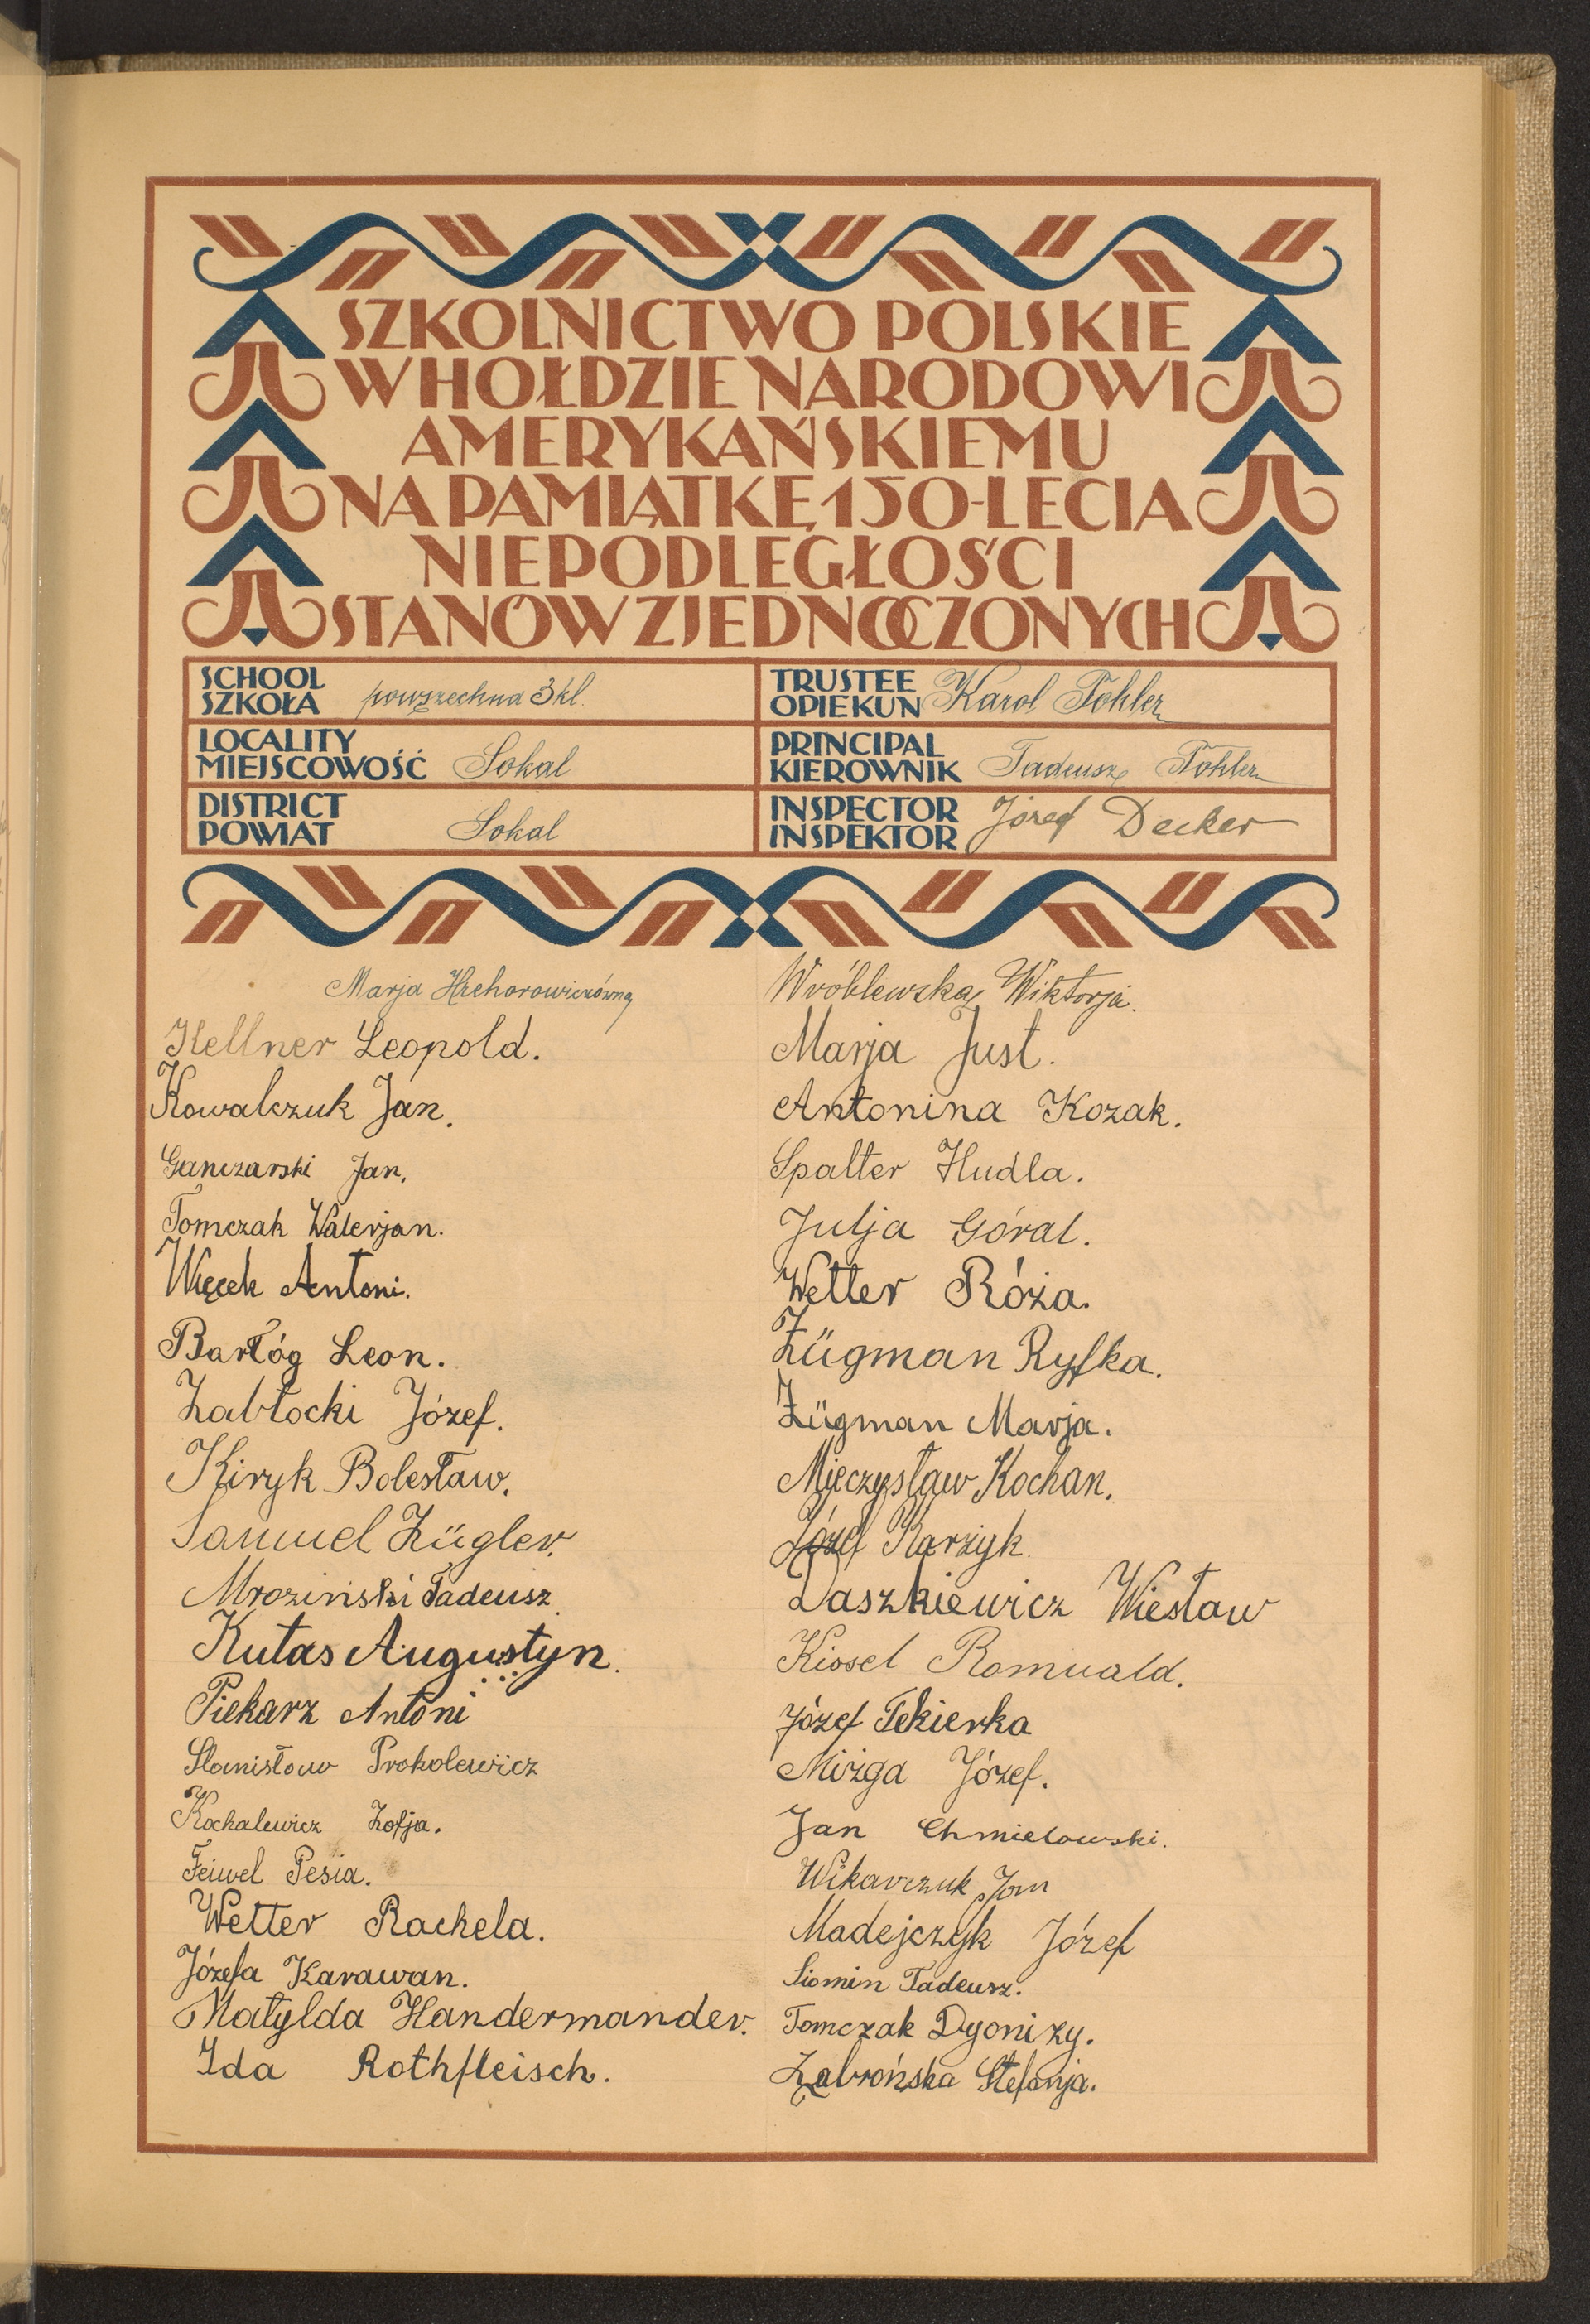 SZKOLNICTWO POLSKIE
W HOŁDZIE NARODOWI
AMERYKAŃSKIEMU
NA PAMIĄTKĘ 150-LECIA
NIEPODLEGŁOŚCI
STANÓW ZJEDNOCZONYCH
SCHOOL
SZKOŁA powszechna 3 kl.
LOCALITY
MIEJSCOWOŚĆ Sokal
DISTRICT
POWIAT Sokal
TRUSTEE
OPIEKUN Karol Töhler
PRINCIPAL
KIEROWNIK Tadeusz Töhler
INSPECTOR
INSPEKTOR Józef Decker
Marja Hrehorowiczówna
Kellner Leopold.
Kowalczuk Jan.
Ganczarski Jan.
Tomczak Walerjan.
Więcek Antoni.
Barłóg Leon.
Zabłocki Józef.
Kiryk Bolesław.
Samuel Zügler.
Mroziński Tadeusz.
Kutas Augustyn.
Piekarz Antoni
Stanisław Prokolewicz
Kochalewicz Zofja.
Feiwel Pesia.
Wetter Rachela.
Józefa Karawan.
Matylda Handermander.
Ida Rothfleisch.
Wróblewska Wiktorja.
Marja Just.
Antonina Kozak.
Spalter Hudla.
Julja Góral.
Wetter Róża.
Zügman Ryfka.
Zügman Marja.
Mieczysław Kochan.
Józef Karzyk.
Daszkiewicz Wiesław
Kiosel Romuald.
Józef Tekierka
Mizga Józef.
Jan Chmielowski.
Wikarczuk Jan
Madejczyk Józef
Siomin Tadeusz.
Tomczak Dyonizy.
Zabrońska Stefanja.